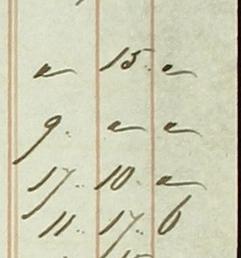 " 15 "
9 " "
17 10 "
11 17 6
15